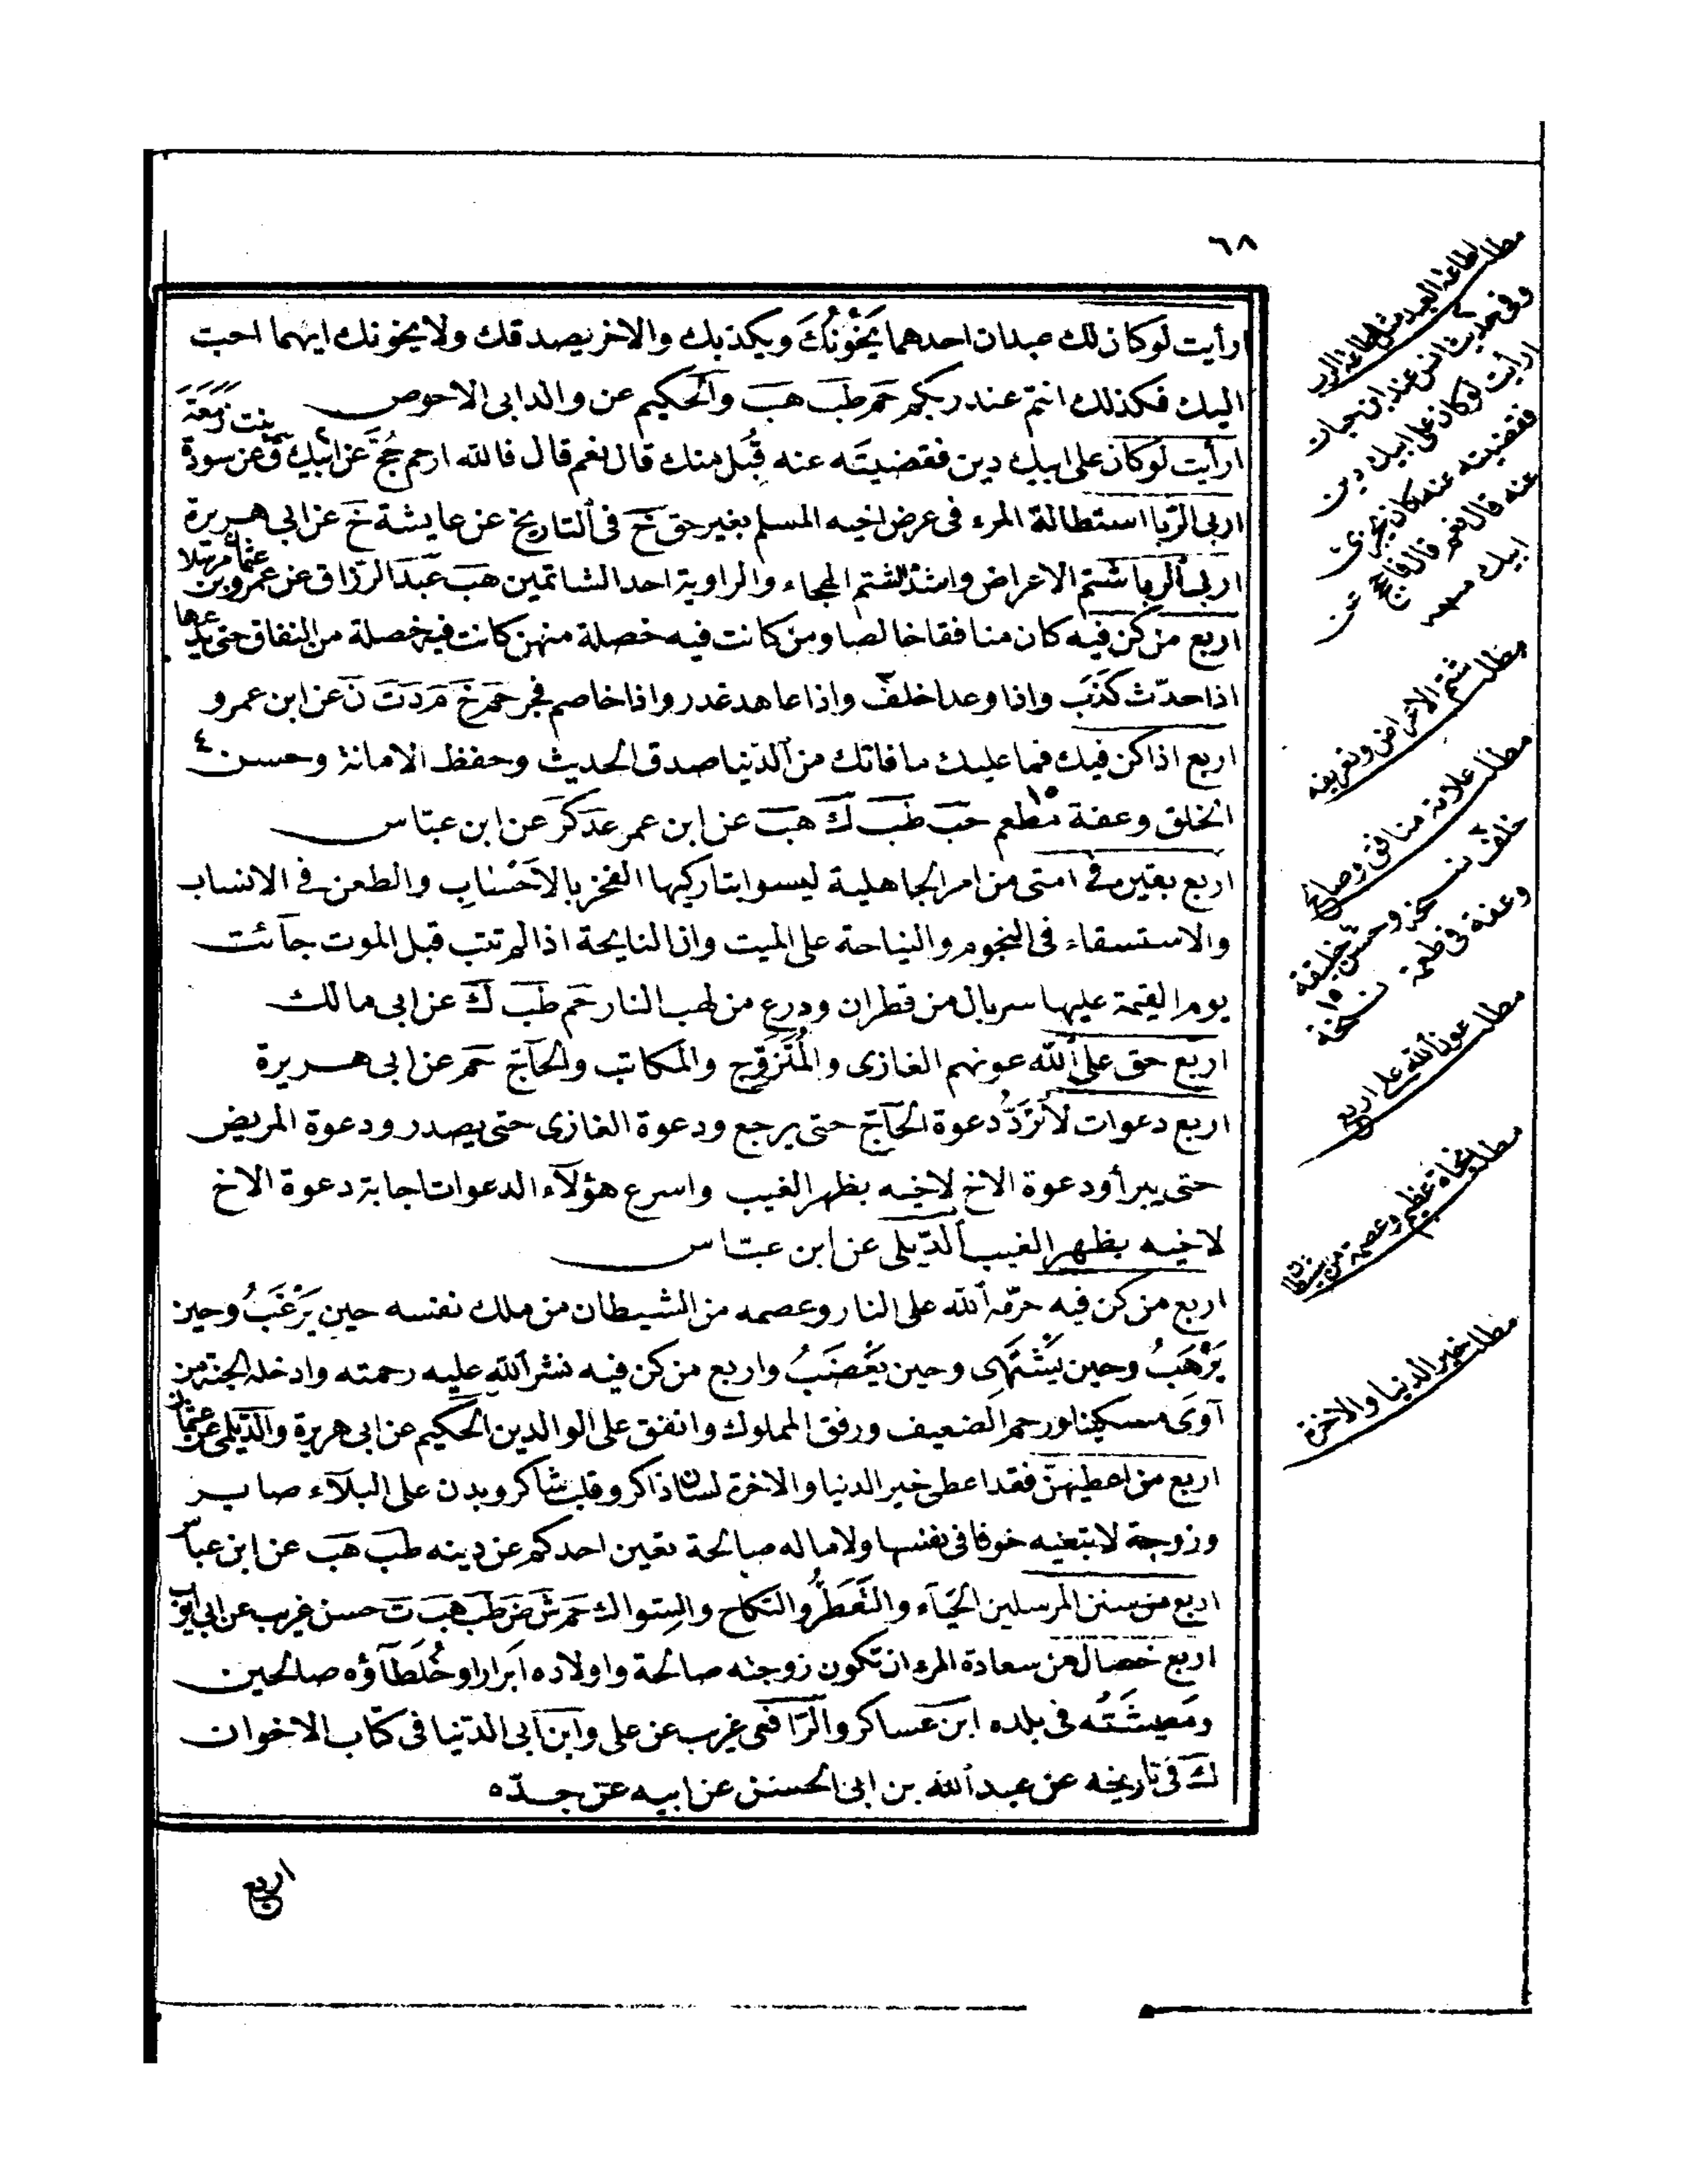 ٦٨
ارأيت لوكان لك عبدان احدهما يَخُونُكَ ويكذبك والاخر يصدقك ولا يخونك ايهما احب
اليك فكذلك انتم عند ربكم حم طب هب والحكيم عن والد ابى الاحوص
ارأيت لوكان على ابيك دين فقضيته عنه قُبل منك قال نعم قال فالله ارحم حُجَّ عن ابيك ق عن سودة
بنت زمعة
اربى الربا استطالة المرء فى عرض اخيه المسلم بغير حق خ فى التاريخ عن عايشة خ عن ابى هريرة
اربى الربا شتم الاعراض واشد الشتم الهجاء والراوية احد الشاتمين هب عبد الرزاق عن عمرو بن
عثمان مرسلا
اربع من كن فيه كان منافقا خالصا ومن كانت فيه خصلة منهن كانت فيه خصلة من النفاق حتى يدعها
اذا حدّث كذَبَ واذا وعد اخلف واذا عاهد غدر واذا خاصم فجر حم خ م د ت ن عن ابن عمرو
اربع اذا كن فيك فما عليك ما فاتك من الدّنيا صدق الحديث وحفظ الامانة وحسن ٤
الخلق وعفة مطعم حب طب ك هب عن ابن عمر عد كر عن ابن عبّاس
اربع بقين فى امتى من امر الجاهلية ليسوا بتاركيها الفخر بالاَحْسابِ والطعن فى الانساب
والاستسقاء فى النجوم والنياحة على الميت وان النايحة اذا لم تتب قبل الموت جآئت
يوم القيمة عليها سربال من قطران ودرع من لهب النار حم طب ك عن ابى مالك
اربع حق على الله عونهم الغازى والمُتَزَوِّج والمكاتب والحآجّ حم عن ابى هريرة
اربع دعوات لا تُرَدُّ دعوة الحآجّ حتى يرجع ودعوة الغازى حتى يصدر ودعوة المريض
حتى يبرأ ودعوة الاخ لاخيه بظهر الغيب واسرع هؤلآء الدعوات اجابة دعوة الاخ
لاخيه بظهر الغيب الدّيلى عن ابن عبّاس
اربع من كن فيه حرّمه الله على النار وعصمه من الشيطان من ملك نفسه حين يَرْغَبُ وحين
يَرْهَبُ وحين يَشْتَهِى وحين يَغْضَبُ واربع من كن فيه نشر الله عليه رحمته وادخله الجنة من
آوَى مسكينا ورحم الضعيف ورفق المملوك وانفق على الوالدين الحكيم عن ابى هريرة والدّيلى عن عثمان
اربع من اعطيهنّ فقد اعطى خير الدنيا والاخرة لسان ذاكر وقلب شاكر وبدن على البلآء صابر
وزوجة لا تبغيه خوفا فى نفسها ولا ماله صالحة تعين احدكم عن دينه طب هب عن ابن عباس
اربع من سنن المرسلين الحيآء والتَّعَطُّر والنكاح والسِّواك حم ش ض طب هب ت حسن غريب عن ابى ايوب
اربع خصال من سعادة المرء ان تكون زوجته صالحة واولاده ابرارا وخُلَطآؤه صالحين
ومَعيشَتُه فى بلده ابن عساكر والرّافعى غريب عن على وابن ابى الدّنيا فى كتاب الاخوان
ك فى تاريخه عن عبد الله بن ابى الحسن عن ابيه عن جدّه
اربع
وفى حديث انس عند ابن حبان
ارأيت لوكان على ابيك دين
فقضيته عنه كان يجزئ
عنه قال نعم قال فاحج عن
ابيك
مطلب شتم الاعراض وتعريفه
مطلب علامة منافق وصالح
خلف نسخه وحسن خليقة
وعفة فى طعمة نسخة
مطلب عون الله على اربع
مطلب نجاة عظيم وعصمة من شيطان
مطلب خير الدنيا والاخرة